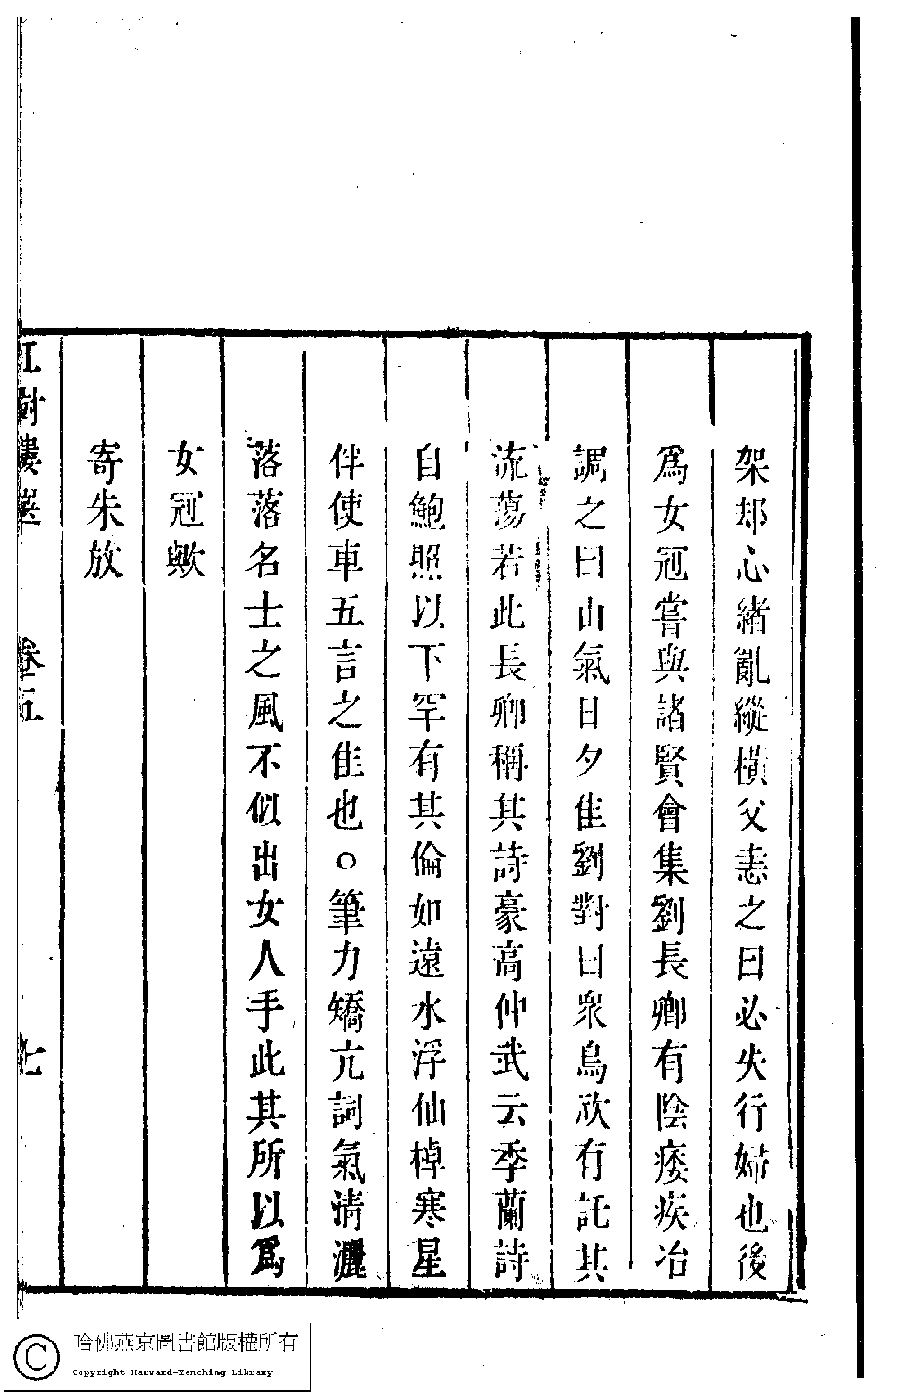 架却心緒亂縱橫父恚之曰必失行婦也後
爲女冠嘗與諸賢會集劉長卿有陰痿疾冶
調之曰山氣日夕佳劉對曰衆鳥欣有託其
流蕩若此長卿稱其詩豪高仲武云季蘭詩
自鮑照以下罕有其倫如遠水浮仙棹寒星
伴使車五言之佳也○筆力矯亢詞氣清灑
落落名士之風不似出女人手此其所以爲
女冠歟
寄朱放
紅樹樓選 卷五 七
哈佛燕京圖書館版權所有
Copyright Harvard-Yenching Library